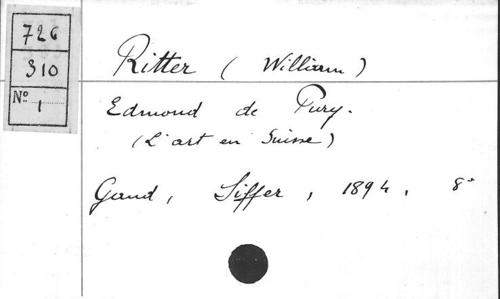 726
310
Nº 1
Ritter (William)
Edmond de Pury.
(L'art en Suisse)
Gand, Siffer, 1894, 8º